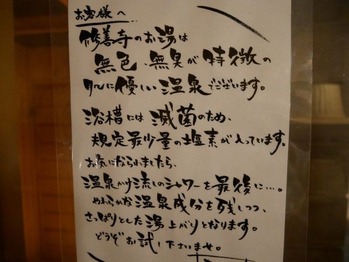 お客様へ
修善寺のお湯は
無色・無臭が特徴の
肌に優しい温泉でございます。
浴槽には滅菌のため、
規定最少量の塩素が入っています。
お気になられましたら、
温泉かけ流しのシャワーを最後に…。
やわらかな温泉成分を残しつつ、
さっぱりとした湯上がりとなります。
どうぞお試し下さいませ。